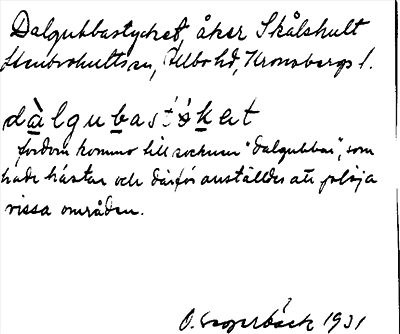 Dalgubbastycket, åker Skålshult
Stenbrohults sn, Allbo hd, Kronobergs l.
dàlgubastỳkət
fordom kommo till socknen "dalgubbar", som
hade hästar och därför anställdes att plöja
vissa områden.
O. 1931